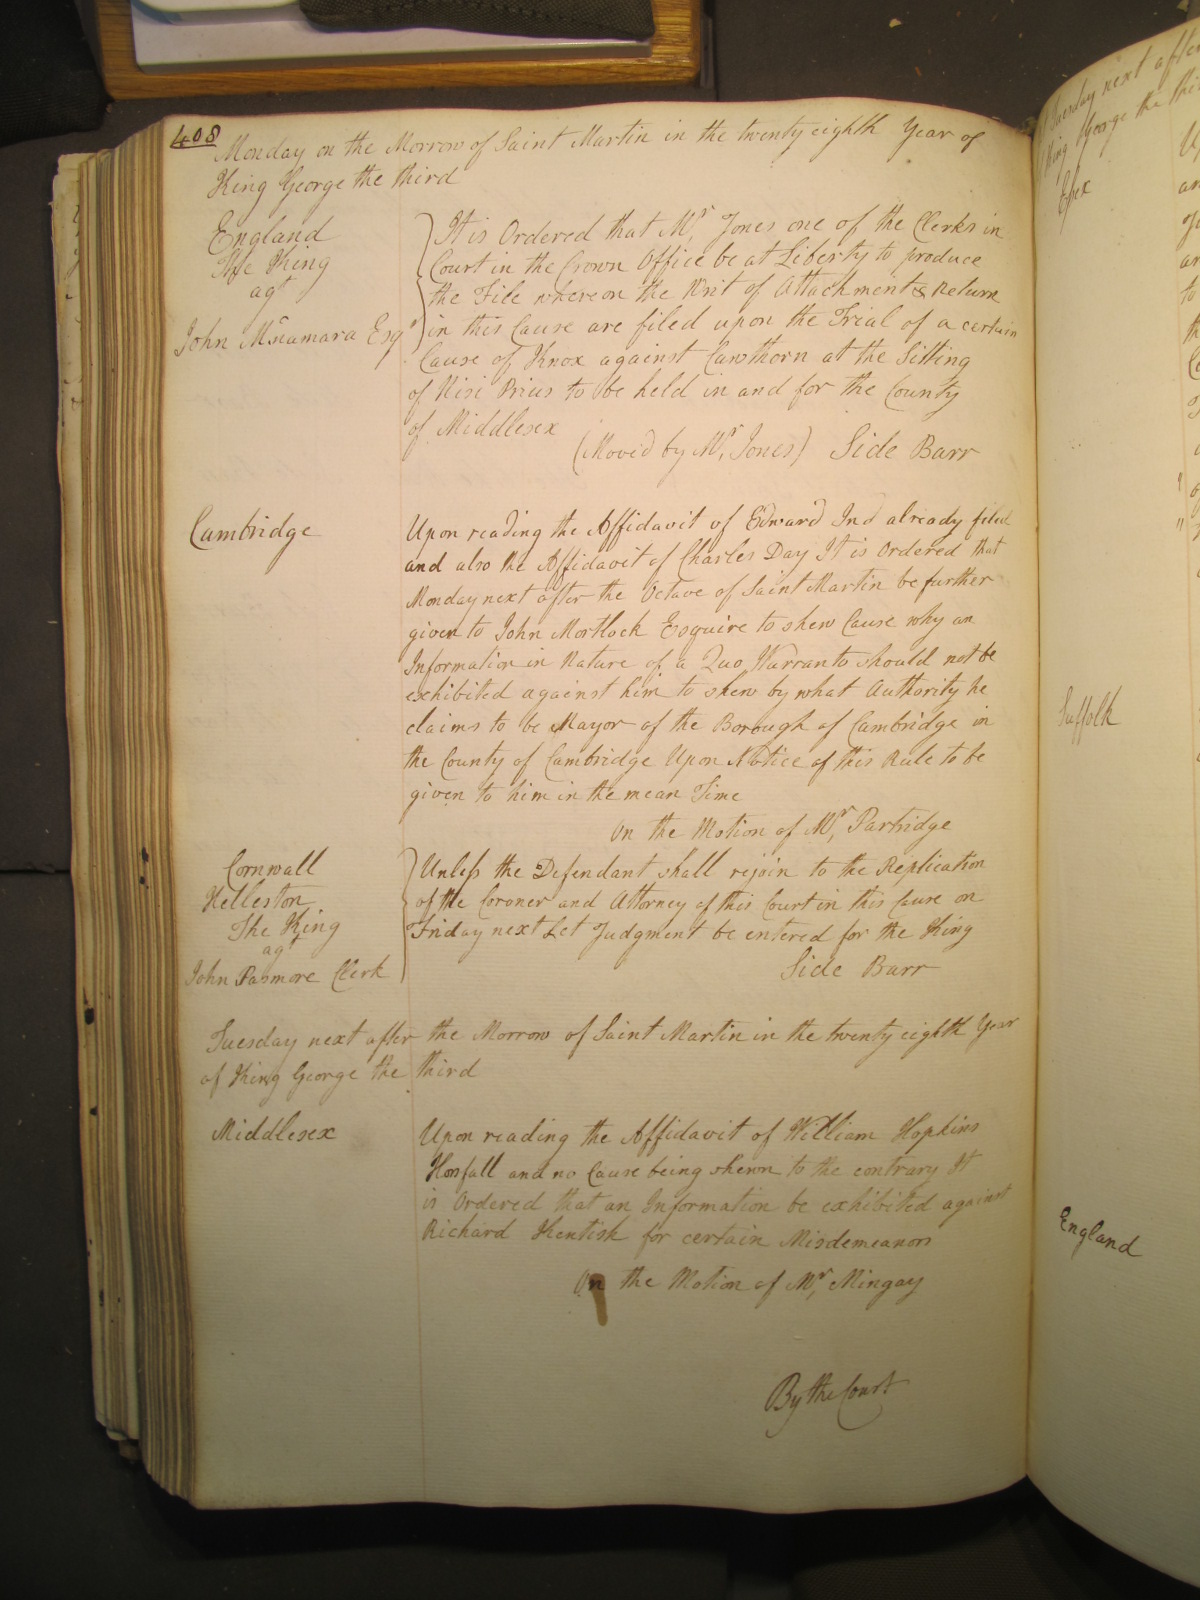 408
Monday on the Morrow of Saint Martin in the twenty eighth Year of
King George the third
England
The King
agt
John Mcnamara Esqr
It is Ordered that Mr. Jones one of the Clerks in
Court in the Crown Office be at Liberty to produce
the File whereon the Writ of Attachment & Return
in this Cause are filed upon the Trial of a certain
Cause of Knox against Cawthorn at the Sitting
of Nisi Prius to be held in and for the County
of Middlesex
(Moved by Mr. Jones) Side Barr
Cambridge
Upon reading the Affidavit of Edward Ind already filed
and also the Affidavit of Charles Day It is Ordered that
Monday next after the Octave of Saint Martin be further
given to John Mortlock Esquire to shew Cause why an
Information in Nature of a Quo Warranto should not be
exhibited against him to shew by what Authority he
claims to be Mayor of the Borough of Cambridge in
the County of Cambridge Upon Notice of this Rule to be
given to him in the mean Time
On the Motion of Mr. Partridge
Cornwall
Helleston
The King
agt
John Pasmore Clerk
Unless the Defendant shall rejoin to the Replication
of the Coroner and Attorney of this Court in this Cause on
Friday next Let Judgment be entered for the King
Side Barr
Tuesday next after the Morrow of Saint Martin in the twenty eighth Year
of King George the third
Middlesex
Upon reading the Affidavit of William Hopkins
Horsfall and no Cause being shewn to the contrary It
is Ordered that an Information be exhibited against
Richard Kentish for certain Misdemeanors
On the Motion of Mr. Mingay
By the Court
Tuesday next after
King George the thi
Essex
Suffolk
England